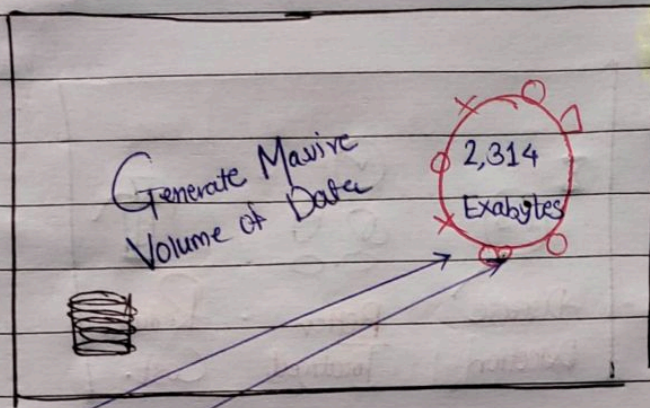 Generate Massive
Volume of Data
2,314
Exabytes